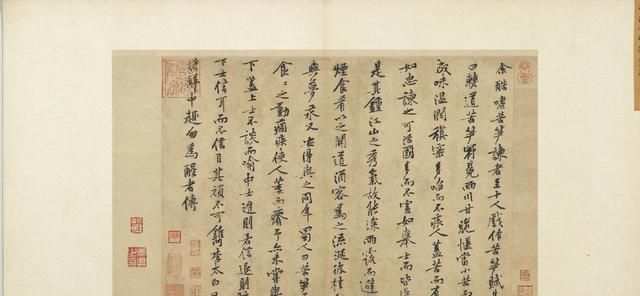 余酷嗜苦筍諫者至十人戲作苦筍賦
曰僰道苦筍冠冕兩川甘脆愜當小苦而
成味溫潤縝密多啗而不疾人蓋苦而有
如忠諫之可活國多而不害如舉士而皆
是其鍾江山之秀氣故能深雨露而避
煙食肴以之開道酒客為之流涎彼桂
與夢永又安得與之同年蜀人曰苦筍
食〻之動痼疾使人萎而瘠予亦未嘗與
下蓋上士不談而喻中士進則若信退則
下士信耳而不信目其頑不可鐫李太白曰
得醉中趣勿為醒者傳